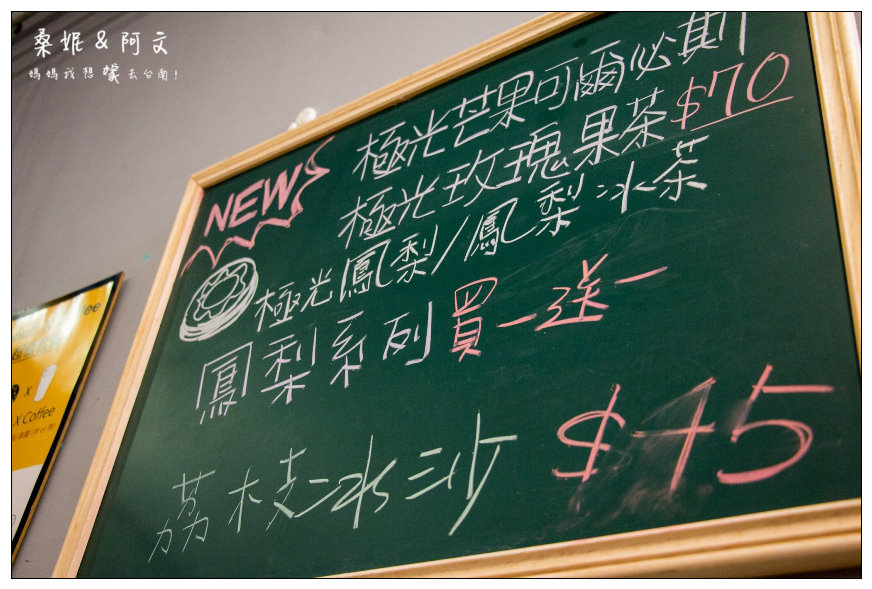 桑妮&阿文
媽媽我想嫁去台南!
NEW
極光芒果可爾必斯
極光玫瑰果茶 $70
極光鳳梨/鳳梨冰茶
鳳梨系列買一送一
荔枝冰沙 $45
ee
X
X Coffee